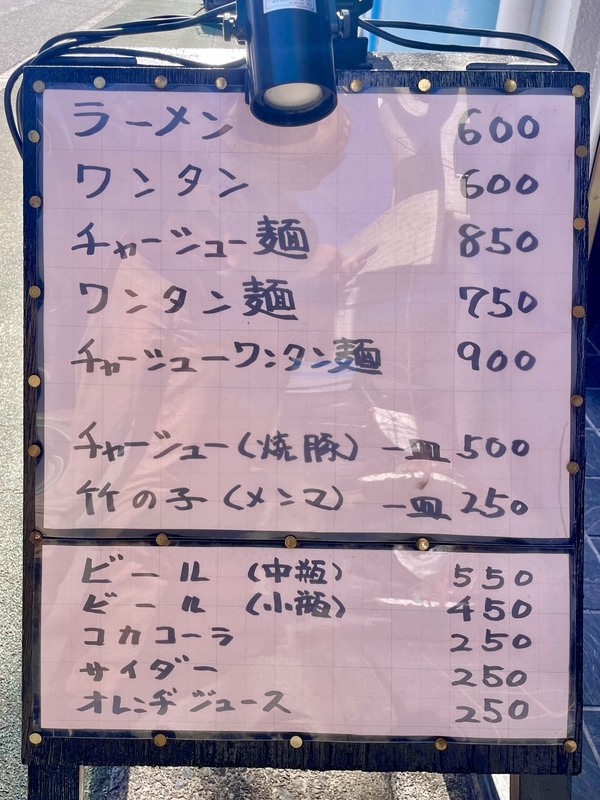 ラーメン 600
ワンタン 600
チャーシュー麺 850
ワンタン麺 750
チャーシューワンタン麺 900
チャーシュー(焼豚) 一皿 500
竹の子(メンマ) 一皿 250
ビール (中瓶) 550
ビール (小瓶) 450
コカコーラ 250
サイダー 250
オレンヂジュース 250